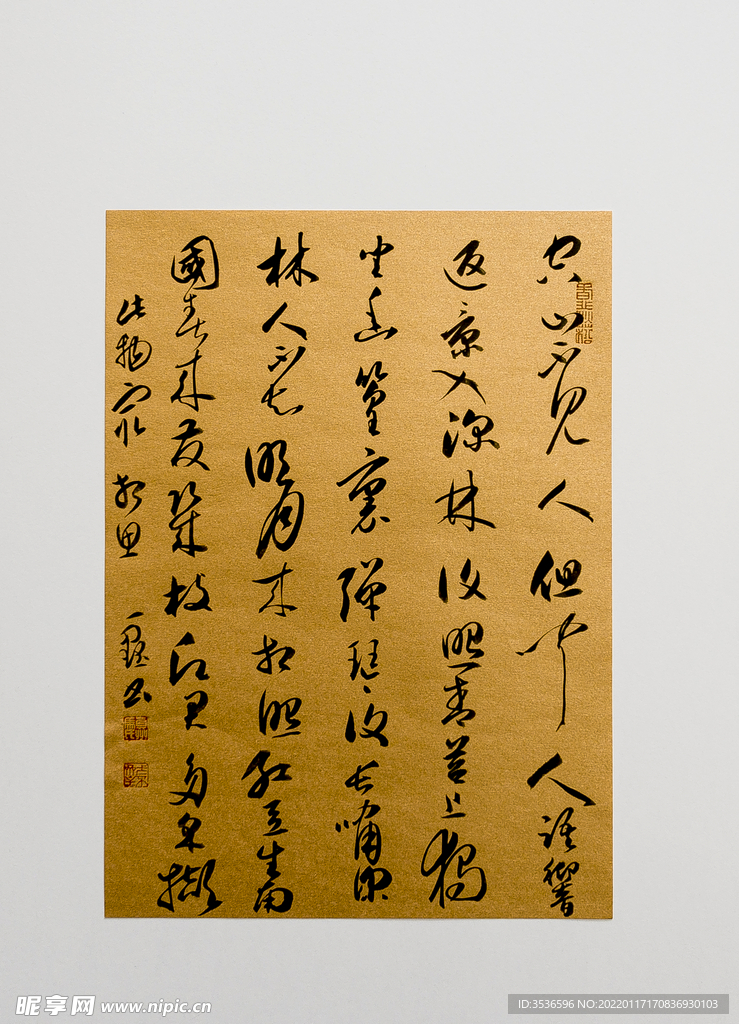 空山不見人但聞人語響
返景入深林復照青苔上獨
坐幽篁裏彈琴復長嘯深
林人不知明月來相照紅豆生南
國春來發幾枝願君多采擷
此物最相思 书
昵享网 www.nipic.cn
ID:3536596 NO:20220117170836930103